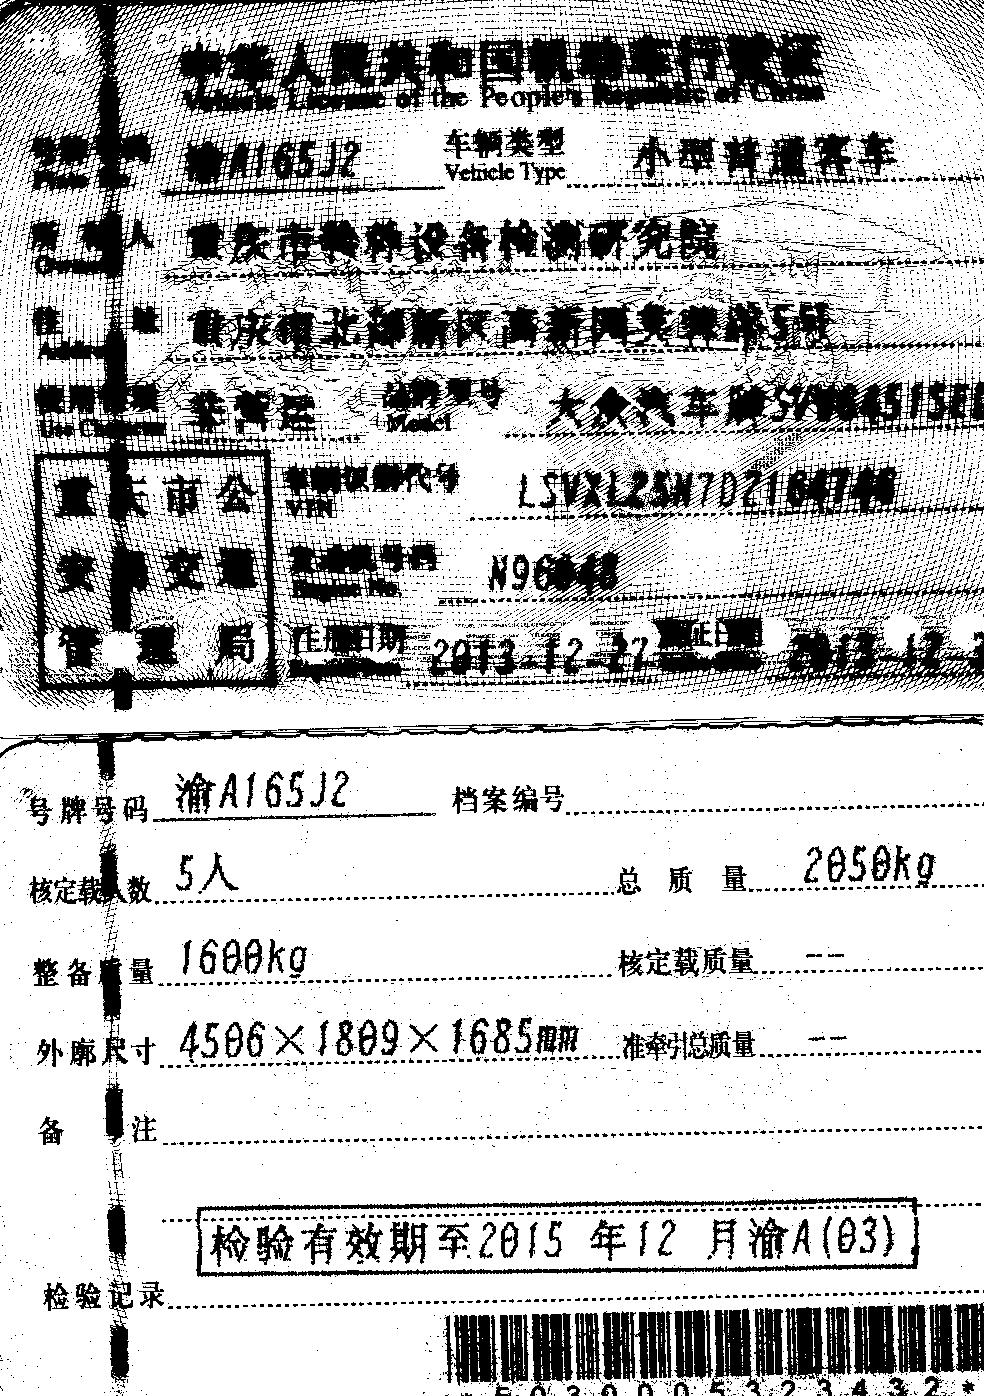 中华人民共和国机动车行驶证
Vehicle License of the People's Republic of China
号牌号码 渝A165J2 车辆类型 小型普通客车
Plate No. Vehicle Type
所有人 重庆市特种设备检测研究院
Owner
住址 重庆市北部新区高新园
Address
使用性质 非营运 品牌型号 大众汽车牌
Use Character Model
重庆市公 车辆识别代号 LSVXL25N7D2164746
VIN
安局交通 发动机号码
Engine No.
管理局 注册日期 2013-12-27 发证日期 2013-12-
号牌号码 渝A165J2 档案编号
核定载人数 5人 总质量 2050kg
整备质量 1600kg 核定载质量 --
外廓尺寸 4506×1809×1685mm 准牵引总质量 --
备注
检验有效期至2015 年12 月渝A(03)
检验记录